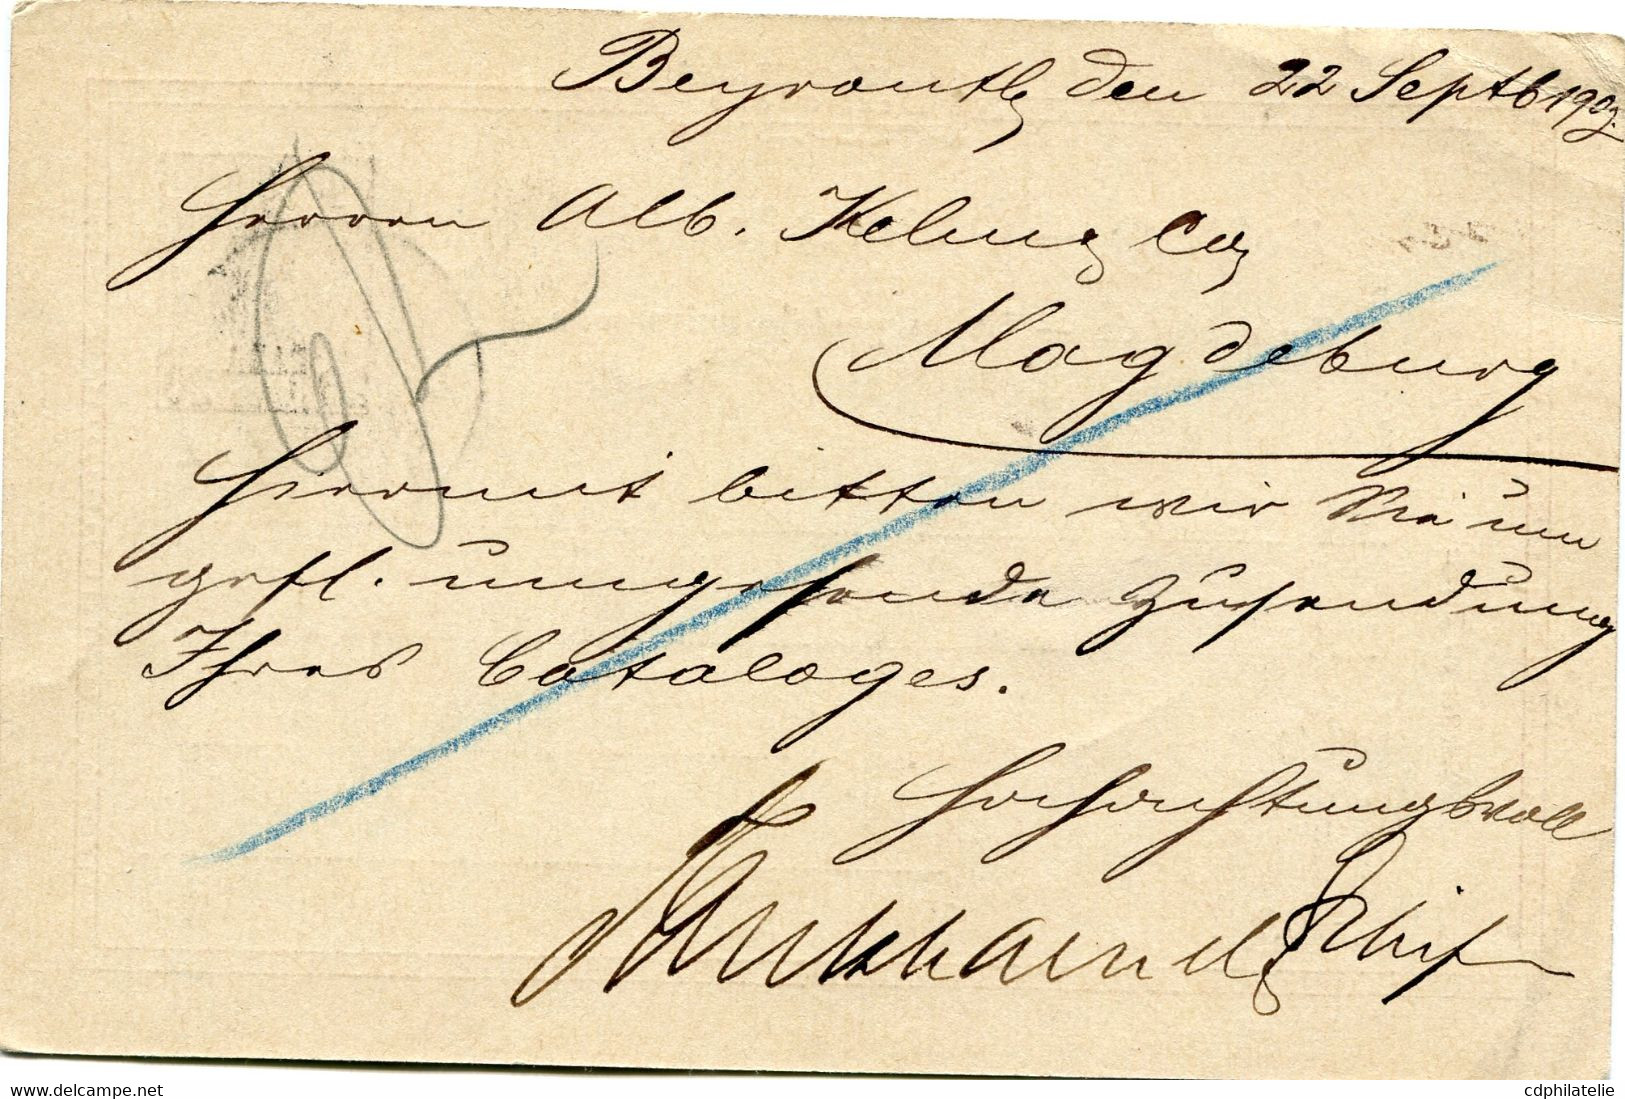 Beyrouth den 22 Septb 190
Herren Alb. Kelung Co
Magdeburg
Hiermit bitten wir Sie um
gefl. umgehende Zusendung
Ihres Cataloges.
Hochachtungsvoll
www.delcampe.net
cdphilatelie